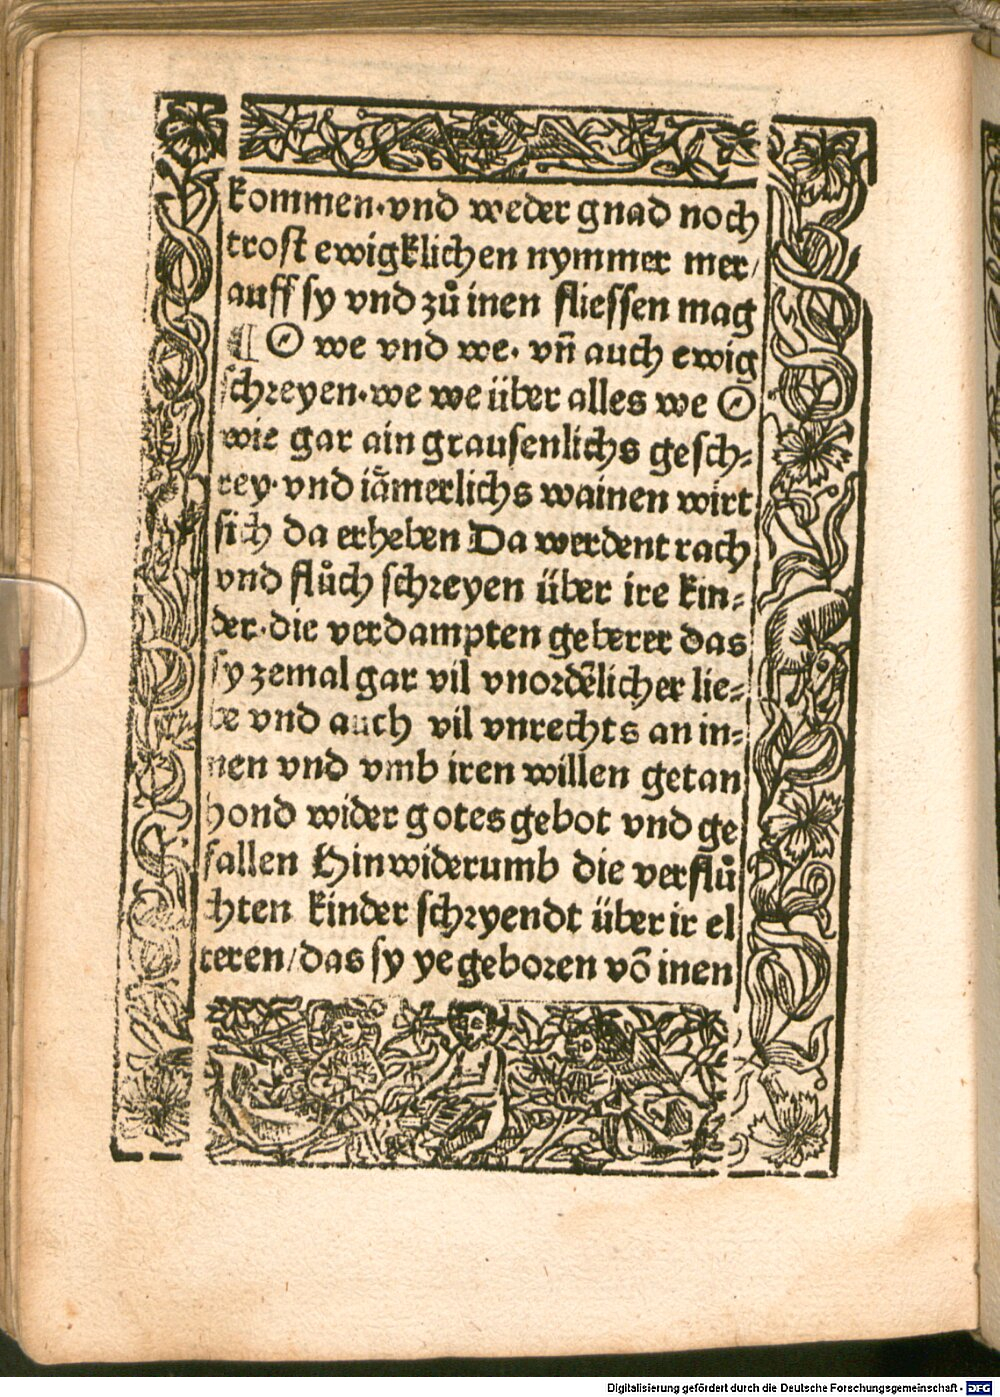 kommen·vnd weder gnad noch
trost ewigklichen nymmer mer/
auff sy vnd zů inen fliessen mag
¶ O we vnd we· vñ auch ewig
schreyen·we we über alles we O
wie gar ain grausenlichs gesch⸗
rey·vnd iãmerlichs wainen wirt
sich da erheben Da werdent rach
vnd flůch schreyen über ire kin⸗
der·die verdampten geberer das
sy zemal gar vil vnordẽlicher lie⸗
be vnd auch vil vnrechts an in⸗
nen vnd vmb iren willen getan
hond wider gotes gebot vnd ge
fallen Hinwiderumb die verflů
chten kinder schryendt über ir el
teren/das sy ye geboren võ inen
Digitalisierung gefördert durch die Deutsche Forschungsgemeinschaft - DFG